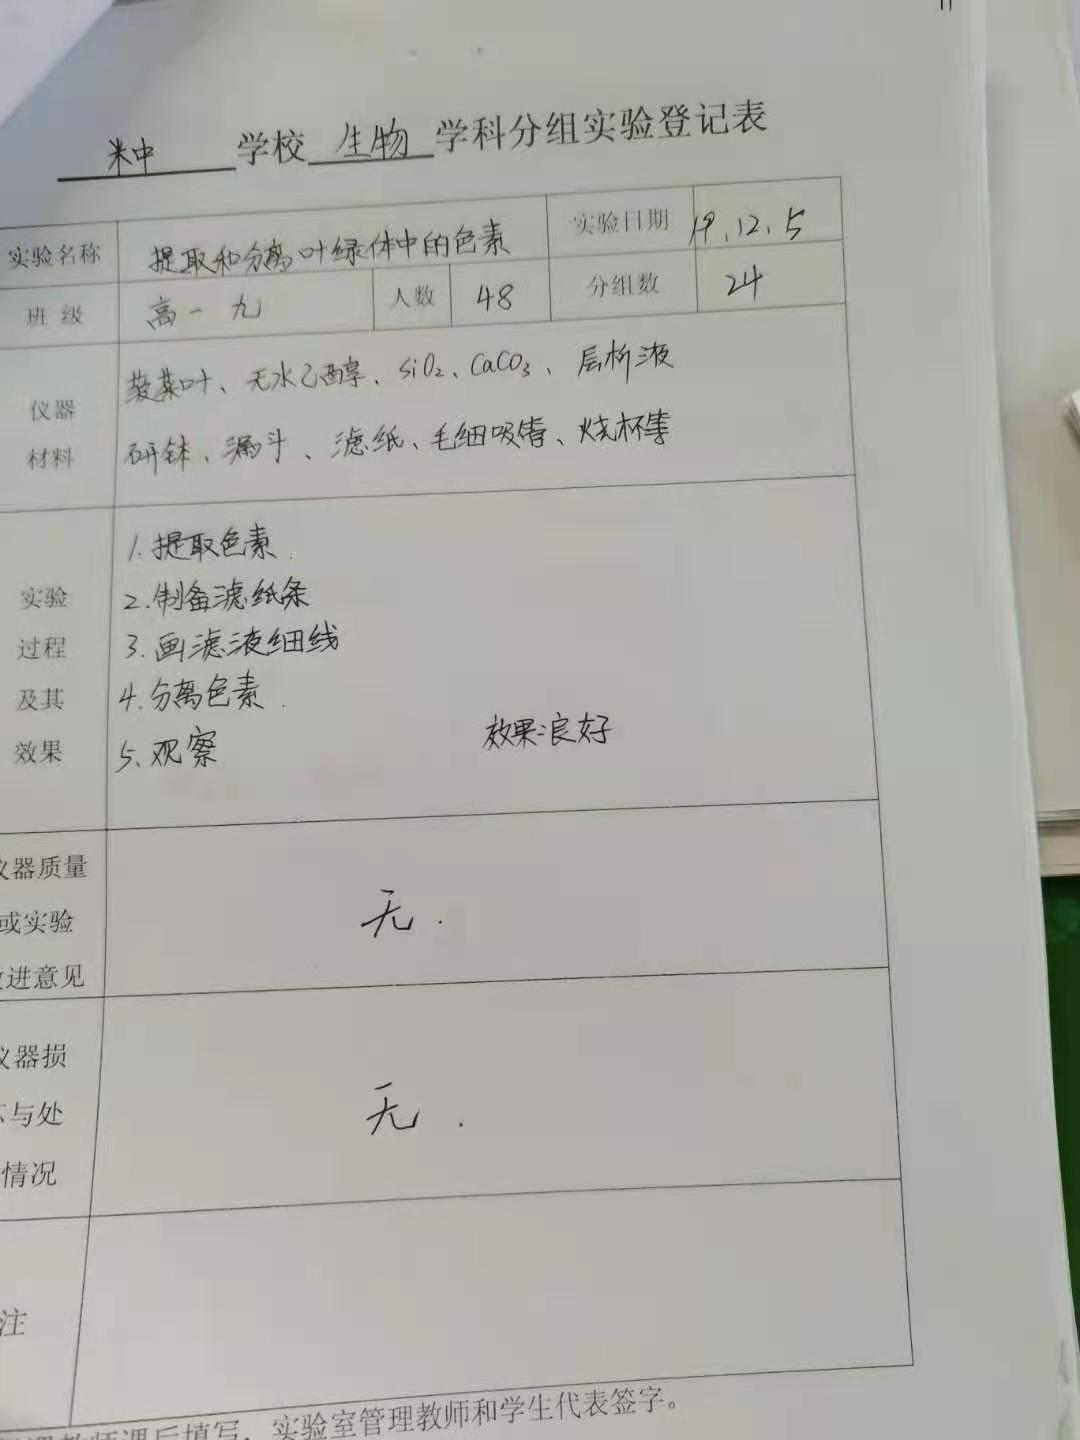 米中 学校 生物 学科分组实验登记表
实验名称 提取和分离叶绿体中的色素 实验日期 19.12.5
班 级 高一九 人数 48 分组数 24
仪器
材料
菠菜叶、无水乙醇、SiO₂、CaCO₃、层析液
研钵、漏斗、滤纸、毛细吸管、烧杯等
实验
过程
及其
效果
1.提取色素.
2.制备滤纸条
3.画滤液细线
4.分离色素.
5.观察 效果:良好
仪器质量
或实验
改进意见
无.
仪器损
坏与处
情况
无.
注
课后填写,实验室管理教师和学生代表签字。